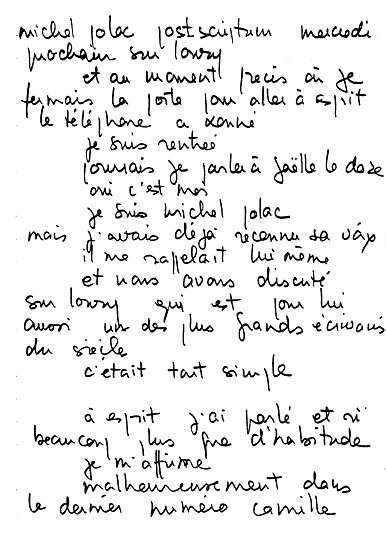 michel polac postscriptum mercredi
prochain sur lowry
et au moment précis où je
fermais la porte pour aller à esprit
le téléphone a sonné
je suis rentré
pourrais je parler à jaëlle le doze
oui c'est moi
je suis michel polac
mais j'avais déjà reconnu sa voix
il me rappelait lui même
et nous avons discuté
sur lowry qui est pour lui
aussi un des plus grands écrivains
du siècle
c'était tout simple
à esprit j'ai parlé et ri
beaucoup plus que d'habitude
je m'affirme
malheureusement dans
le dernier numéro camille